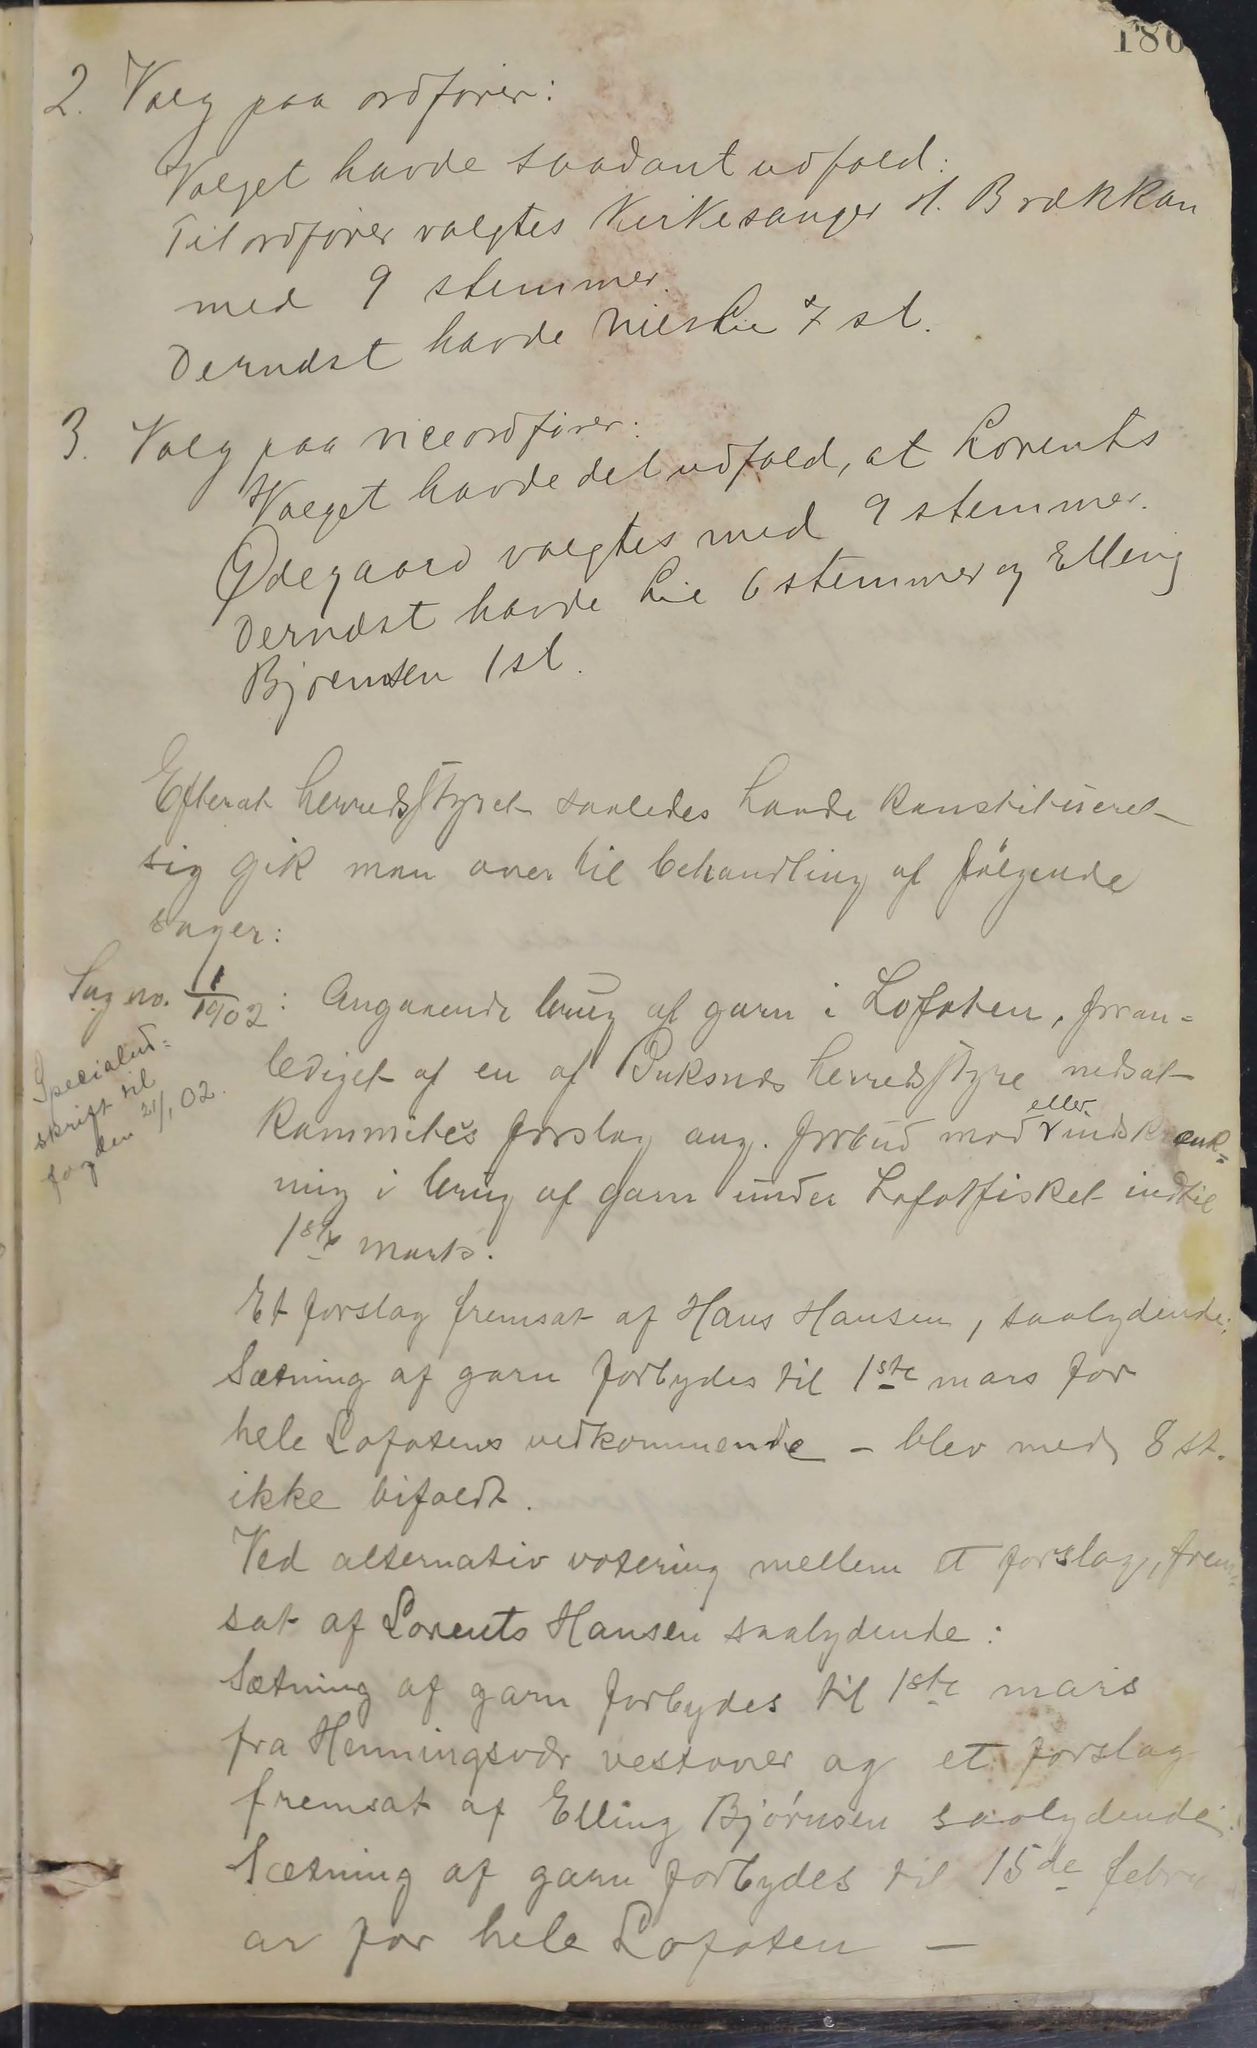 180
2. Valg paa ordfører:
Valget havde saadant udfald:
Til ordfører valgtes Kirkesanger H. Brækkan
med 9 stemmer.
Dernæst havde Niels Lie 7 st.
3. Valg paa viceordfører:
Valget havde det udfald, at Lorents
Ødegaard valgtes med 9 stemmer.
Dernæst havde Lie 6 stemmer og Elling
Bjørnsen 1 st.
Efterat herredsstyret saaledes havde konstitueret
sig gik man over til behandling af følgende
sager:
Sag no. 1/1902: Angaaende brug af garn i Lofoten, foran-
lediget af en af Buksnes herredsstyre nedsat
kommites forslag ang. forbud mod eller indskrænk-
ning i brug af garn under Lofotfisket indtil
1ste marts.
Specialud-
skrift til
fogden 21/1 02.
Et forslag fremsat af Hans Hansen, saalydende:
Sætning af garn forbydes til 1ste mars for
hele Lofotens vedkommende – blev med 8 st.
ikke bifaldt.
Ved alternativ votering mellem et forslag, frem-
sat af Lorents Hansen saalydende:
Sætning af garn forbydes til 1ste mars
fra Henningsvær vestover og et forslag
fremsat af Elling Bjørnsen saalydende:
Sætning af garn forbydes til 15de febru
ar for hele Lofoten –